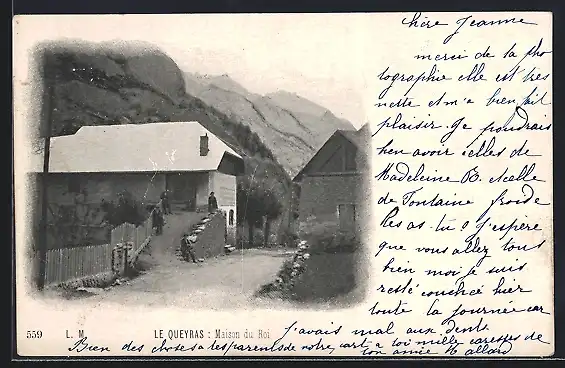 chère Jeanne
merci de la pho
tographie elle est tres
nette et m'a bien fait
plaisir. Je voudrais
bien avoir celles de
Madeleine B. et celle
de Fontaine froide
les as-tu? J'espère
que vous allez tous
bien moi je suis
resté couchée hier
toute la journée car
j'avais mal aux dents
559 L. M. LE QUEYRAS : Maison du Roi
Bien des choses a tes parents de notre part a toi mille caresses de
ton amie M allard